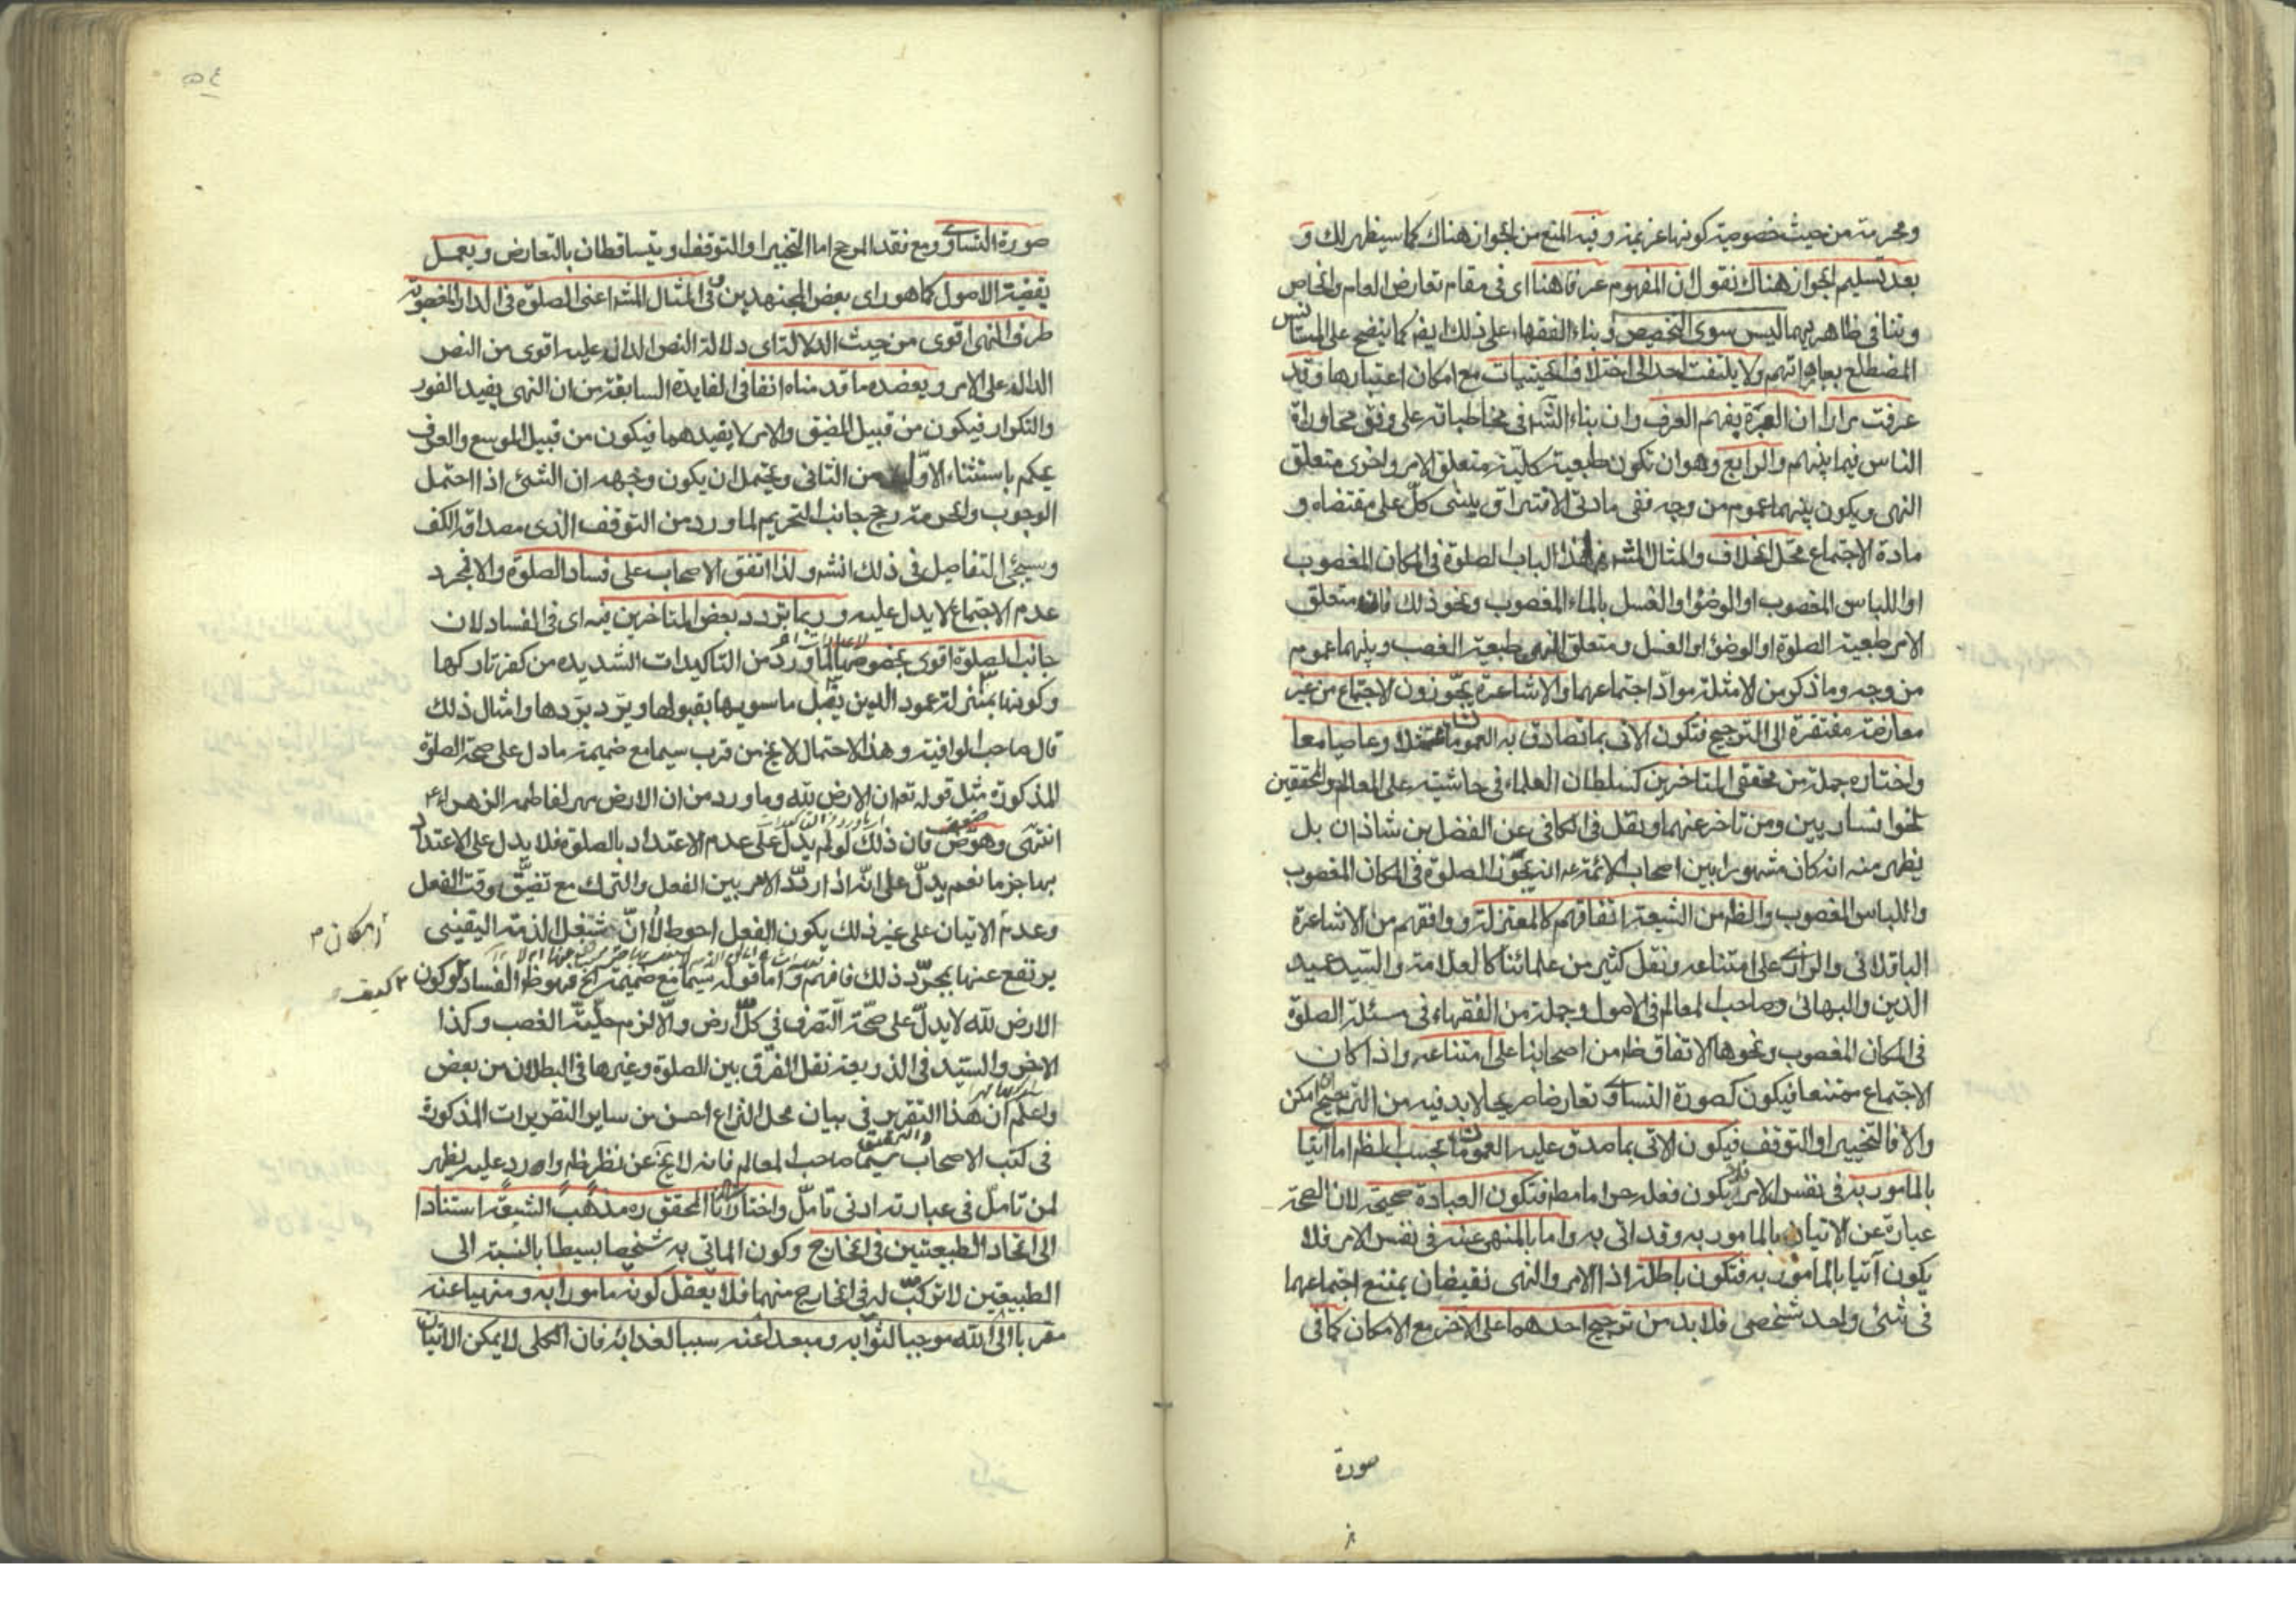 ومحرمة من حيث خصوصية كونها عزيمة وفيه المنع من الجواز هناك كما سيظهر لك و
بعد تسليم الجواز هناك نقول ان المفهوم عرفا هنا اى فى مقام تعارض العام والخاص
وتنافى ظاهريهما ليس سوى التخصيص وبناء الفقهاء على ذلك ايضا كما يتضح على المستانس
المضطلع بعباراتهم ولا يلتفت احد الى اختلاف الحيثيات مع امكان اعتبارها وقد
عرفت مرارا ان العبرة بفهم العرف وان بناء الش فى مخاطباته على وفق محاورات
الناس فيما بينهم والرابع وهو ان تكون طبيعة كلية متعلق الامر واخرى متعلق
النهى ويكون بينهما عموم من وجه ففى مادتى الافتراق يبنى كل على مقتضاه و
مادة الاجتماع محل الخلاف والمثال المش فى هذا الباب الصلوة فى المكان المغصوب
او اللباس المغصوب او الوضؤ او الغسل بالماء المغصوب ونحو ذلك فان متعلق
الامر طبيعة الصلوة او الوضؤ او الغسل ومتعلق النهى طبيعة الغصب وبينهما عموم
من وجه وما ذكر من الامثلة مواد اجتماعهما والاشاعرة يجوزون الاجتماع من غير
معارضة مفتقرة الى الترجيح فتكون الاتى بما تصادق به العمومان ممتثلا وعاصيا معا
واختاره جملة من محققى المتاخرين كسلطان العلماء فى حاشيته على المعالم والمحققين
الخوانساريين ومن تاخر عنهما ونقل فى الكافى عن الفضل بن شاذان بل
يظهر منه انه كان مشهورا بين اصحاب الائمة عه انه يجوز الصلوة فى المكان المغصوب
واللباس المغصوب والظ من الشيعة اتفاقهم كالمعتزلة ووافقهم من الاشاعرة
الباقلانى والرازى على امتناعه ونقل كثير من علمائنا كالعلامة والسيد عميد
الدين والبهائى وصاحب المعالم فى الاصول وجملة من الفقهاء فى مسئلة الصلوة
فى المكان المغصوب ونحوها الاتفاق ظ من اصحابنا على امتناعه واذا كان
الاجتماع ممتنعا فيكون كصورة التساوى تعارضا صريحا لا بد فيه من الترجيح ان امكن
والا فالتخيير او التوقف فيكون الاتى بما صدق عليه العمومان بحسب الظ اما آتيا
بالمامور به فى نفس الامر فلا يكون فعله حراما مط فتكون العبادة صحيحة لان الصحة
عبارة عن الاتيان بالمامور به وقد اتى به واما بالمنهى عنه فى نفس الامر فلا
يكون آتيا بالمامور به فتكون باطلة اذ الامر والنهى نقيضان يمتنع اجتماعهما
فى شئ واحد شخصى فلا بد من ترجيح احدهما على الآخر مع الامكان كما فى
صورة
٥٤
صورة التساوى ومع فقد المرجح اما التخيير او التوقف او يتساقطان بالتعارض ويعمل
بقضية الاصول كما هو راى بعض المجتهدين وفى المثال المش اعنى الصلوة فى الدار المغصوبة
طرف النهى اقوى من حيث الدلالة اى دلالة النص الدال عليه اقوى من النص
الدالة على الامر ويعضده ما قدمناه انفا فى الفايدة السابقة من ان النهى يفيد الفور
والتكرار فيكون من قبيل المضيق والامر لا يفيدهما فيكون من قبيل الموسع والعرف
يحكم باستثناء الاول من الثانى ويحتمل ان يكون وجهه ان الشئ اذا احتمل
الوجوب والحرمة رجح جانب التحريم لما ورد من التوقف الذى مصداقه الكف
وسيجئ التفاصيل فى ذلك انش ولذا اتفق الاصحاب على فساد الصلوة والا فمجرد
عدم الاجتماع لا يدل عليه وربما تردد بعض المتاخرين فيه اى فى الفساد لان
جانب الصلوة اقوى بخصوصها لما ورد من التاكيدات الشديده من كفر تاركها
وكونها بمنزلة عمود الدين يقبل ما سويها بقبولها ويرد بردها وامثال ذلك
قال صاحب الوافية وهذا الاحتمال لا يخ من قرب سيما مع ضميمة ما دل على صحة الصلوة
المذكورة مثل قوله تع ان الارض لله وما ورد من ان الارض مهر لفاطمة الزهراء ع
انتهى وهو ضعيف فان ذلك لو لم يدل على عدم الاعتداد بالصلوة فلا يدل على الاعتداد
بها جزما نعم يدل على انه اذا ردد الامر بين الفعل والترك مع تضيق وقت الفعل
وعدم الاتيان على غير ذلك يكون الفعل احوط لا ان شغل الذمة اليقينى
امكان م
يرتفع عنها بمجرد ذلك فافهم واما قوله سيما مع ضميمة الخ فهو ظ الفساد لو كون
كيف
الارض لله لا يدل على صحة التصرف فى كل ارض والا لزم حلية الغصب وكذا
الاخر والسيد فى الذريعة نقل الفرق بين الصلوة وغيرها فى البطلان من بعض
واعلم ان هذا التقرير فى بيان محل النزاع احسن من ساير التقريرات المذكورة
فى كتب الاصحاب سيما صاحب المعالم فانه لا يخ عن نظر ظ واورد عليه يظهر
لمن تامل فى عبارته ادنى تامل واختار المحقق ره مذهب الشيعة استنادا
الى اتحاد الطبيعتين فى الخارج وكون الماتى به شخصا بسيطا بالنسبة الى
الطبيعتين لا تركب له فى الخارج منهما فلا يعقل كونه مامورا به ومنهيا عنه
مقربا الى الله موجبا لثوابه ومبعدا عنه سببا لعذابه فان الكلى لا يمكن الاتيان